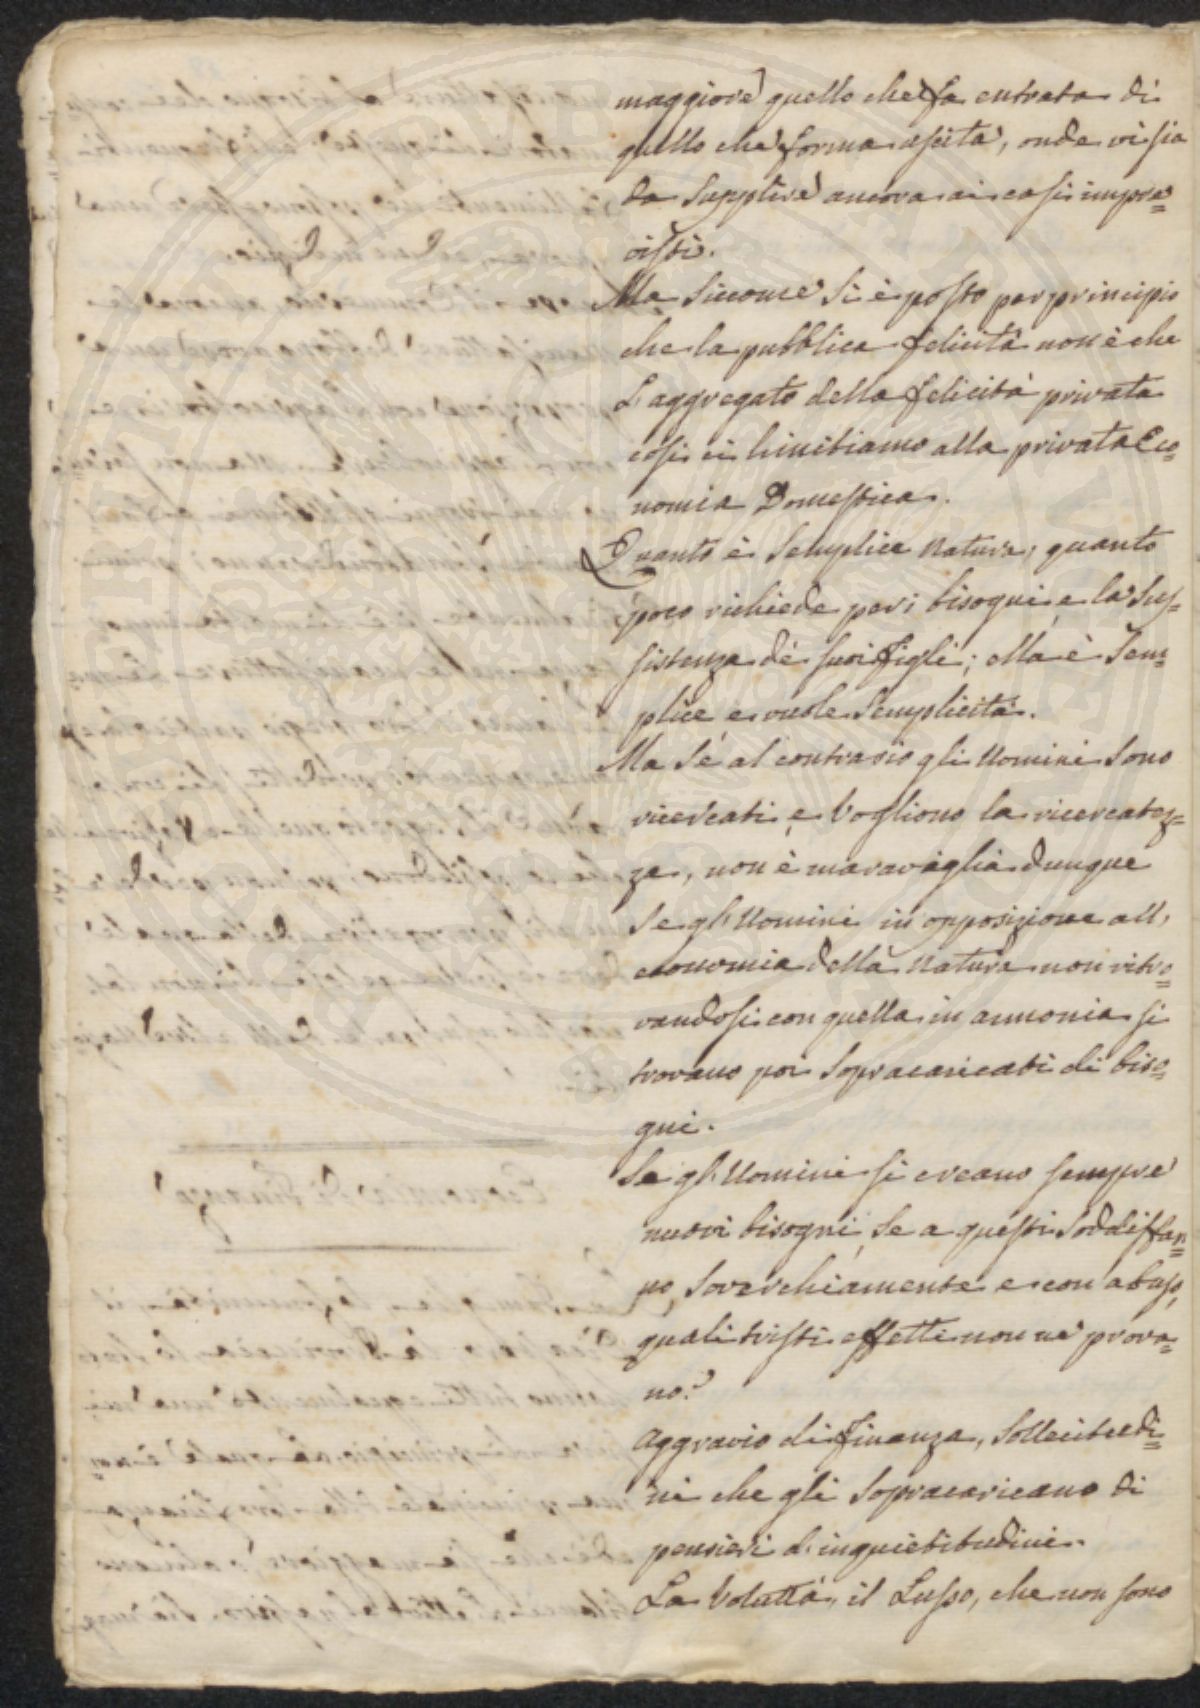 maggiore quello che fa entrata di
quello che forma uscita, onde vi sia
da supplire ancora ai casi impre=
visti.
Ma siccome si è posto per principio
che la pubblica felicità non è che
l'aggregato della felicità privata
così ci limitiamo alla privata Eco=
nomia Domestica.
Quanto è semplice Natura; quanto
poco richiede per i bisogni, e la sus=
sistenza de' suoi figli; ella è Sem=
plice, e vuole Semplicità.
Ma se al contrario gli Uomini sono
ricercati, e vogliono la ricercatez=
za, non è maraviglia dunque
se gl'Uomini in opposizione all'
economia della Natura non ritro=
vandosi con quella in armonia si
trovano poi sopracaricati di biso=
gni.
Se gl'Uomini si creano sempre
nuovi bisogni, se a questi soddisfan=
no, soverchiamente e con abuso,
quali tristi effetti non ne prova=
no?
Aggravio di finanza, sollecitudi=
ni che gli sopracaricano di
pensieri d'inquietitudini.
La Voluttà, il Lusso, che non sono